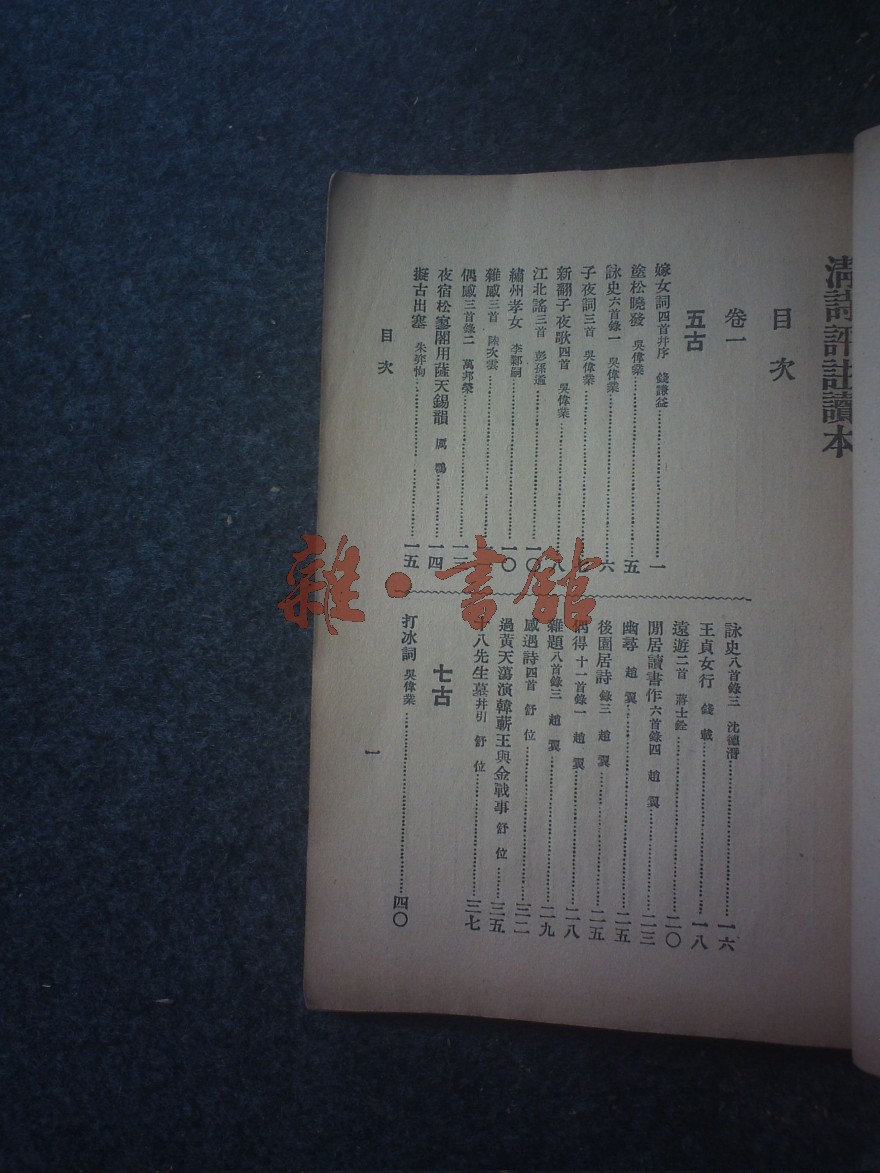 清詩評註讀本
目次
卷一
五古
嫁女詞四首并序 錢謙益 一
塗松曉發 吳偉業 五
詠史六首錄一 吳偉業 六
子夜詞三首 吳偉業 七
新翻子夜歌四首 吳偉業 八
江北謠三首 彭孫遹 一〇
繡州孝女 李鄴嗣 一〇
雜感三首 陸次雲
偶感三首錄二 萬邦榮 一三
夜宿松寥閣用薩天錫韻 厲鶚 一四
擬古出塞 朱 一五
詠史八首錄三 沈德潛 一六
王貞女行 錢載 一八
遠遊二首 蔣士銓 二〇
閒居讀書作六首錄四 趙翼 二三
幽尋 趙翼 二五
後園居詩錄三 趙翼 二五
偶得十一首錄一 趙翼 二八
雜題八首錄三 趙翼 二九
感遇詩四首 舒位 三二
過黃天蕩演韓蘄王與金戰事 舒位 三五
十八先生墓并引 舒位 三七
七古
打冰詞 吳偉業 四〇
目次
一
雜·書館